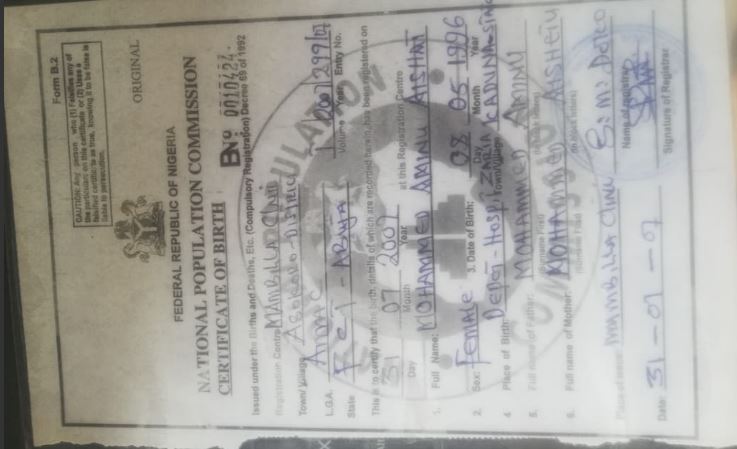 Form B.2
CAUTION: Any person who (1) Falsifies any of
the particulars on this certificate or (2) Uses a
falsified certificate as true, knowing it to be false is
liable to persecution.
ORIGINAL
FEDERAL REPUBLIC OF NIGERIA
NATIONAL POPULATION COMMISSION
CERTIFICATE OF BIRTH
Issued under the Births and Deaths, Etc. (Compulsory Registration) Decree 69 of 1992
Registration Centre MAMBILLA CLINIC
Town/Village ASOKORO-DISTRICT
L.G.A. AMAC
State F.C.T - ABUJA 1 2007 299/07
Volume Year Entry No.
This is to certify that the birth, details of which are recorded herein, has been registered on
31 07 2007 at this Registration Centre
Day Month Year
1. Full Name: MOHAMMED AMINU AISHAT
2. Sex: Female 3. Date of Birth: 08 05 1996
Day Month Year
4 Place of Birth: DEPOT-HOSPI ZARIA KADUNA
Town/Village
5. Full name of Father: MOHAMMED AMINU
(Surname First) (in block letters)
6. Full name of Mother: MOHAMMED
(Surname First) (in block letters)
Place of issue: MAMBILLA Clinic
Name of registrar
Date: 31-07-07
Signature of Registrar